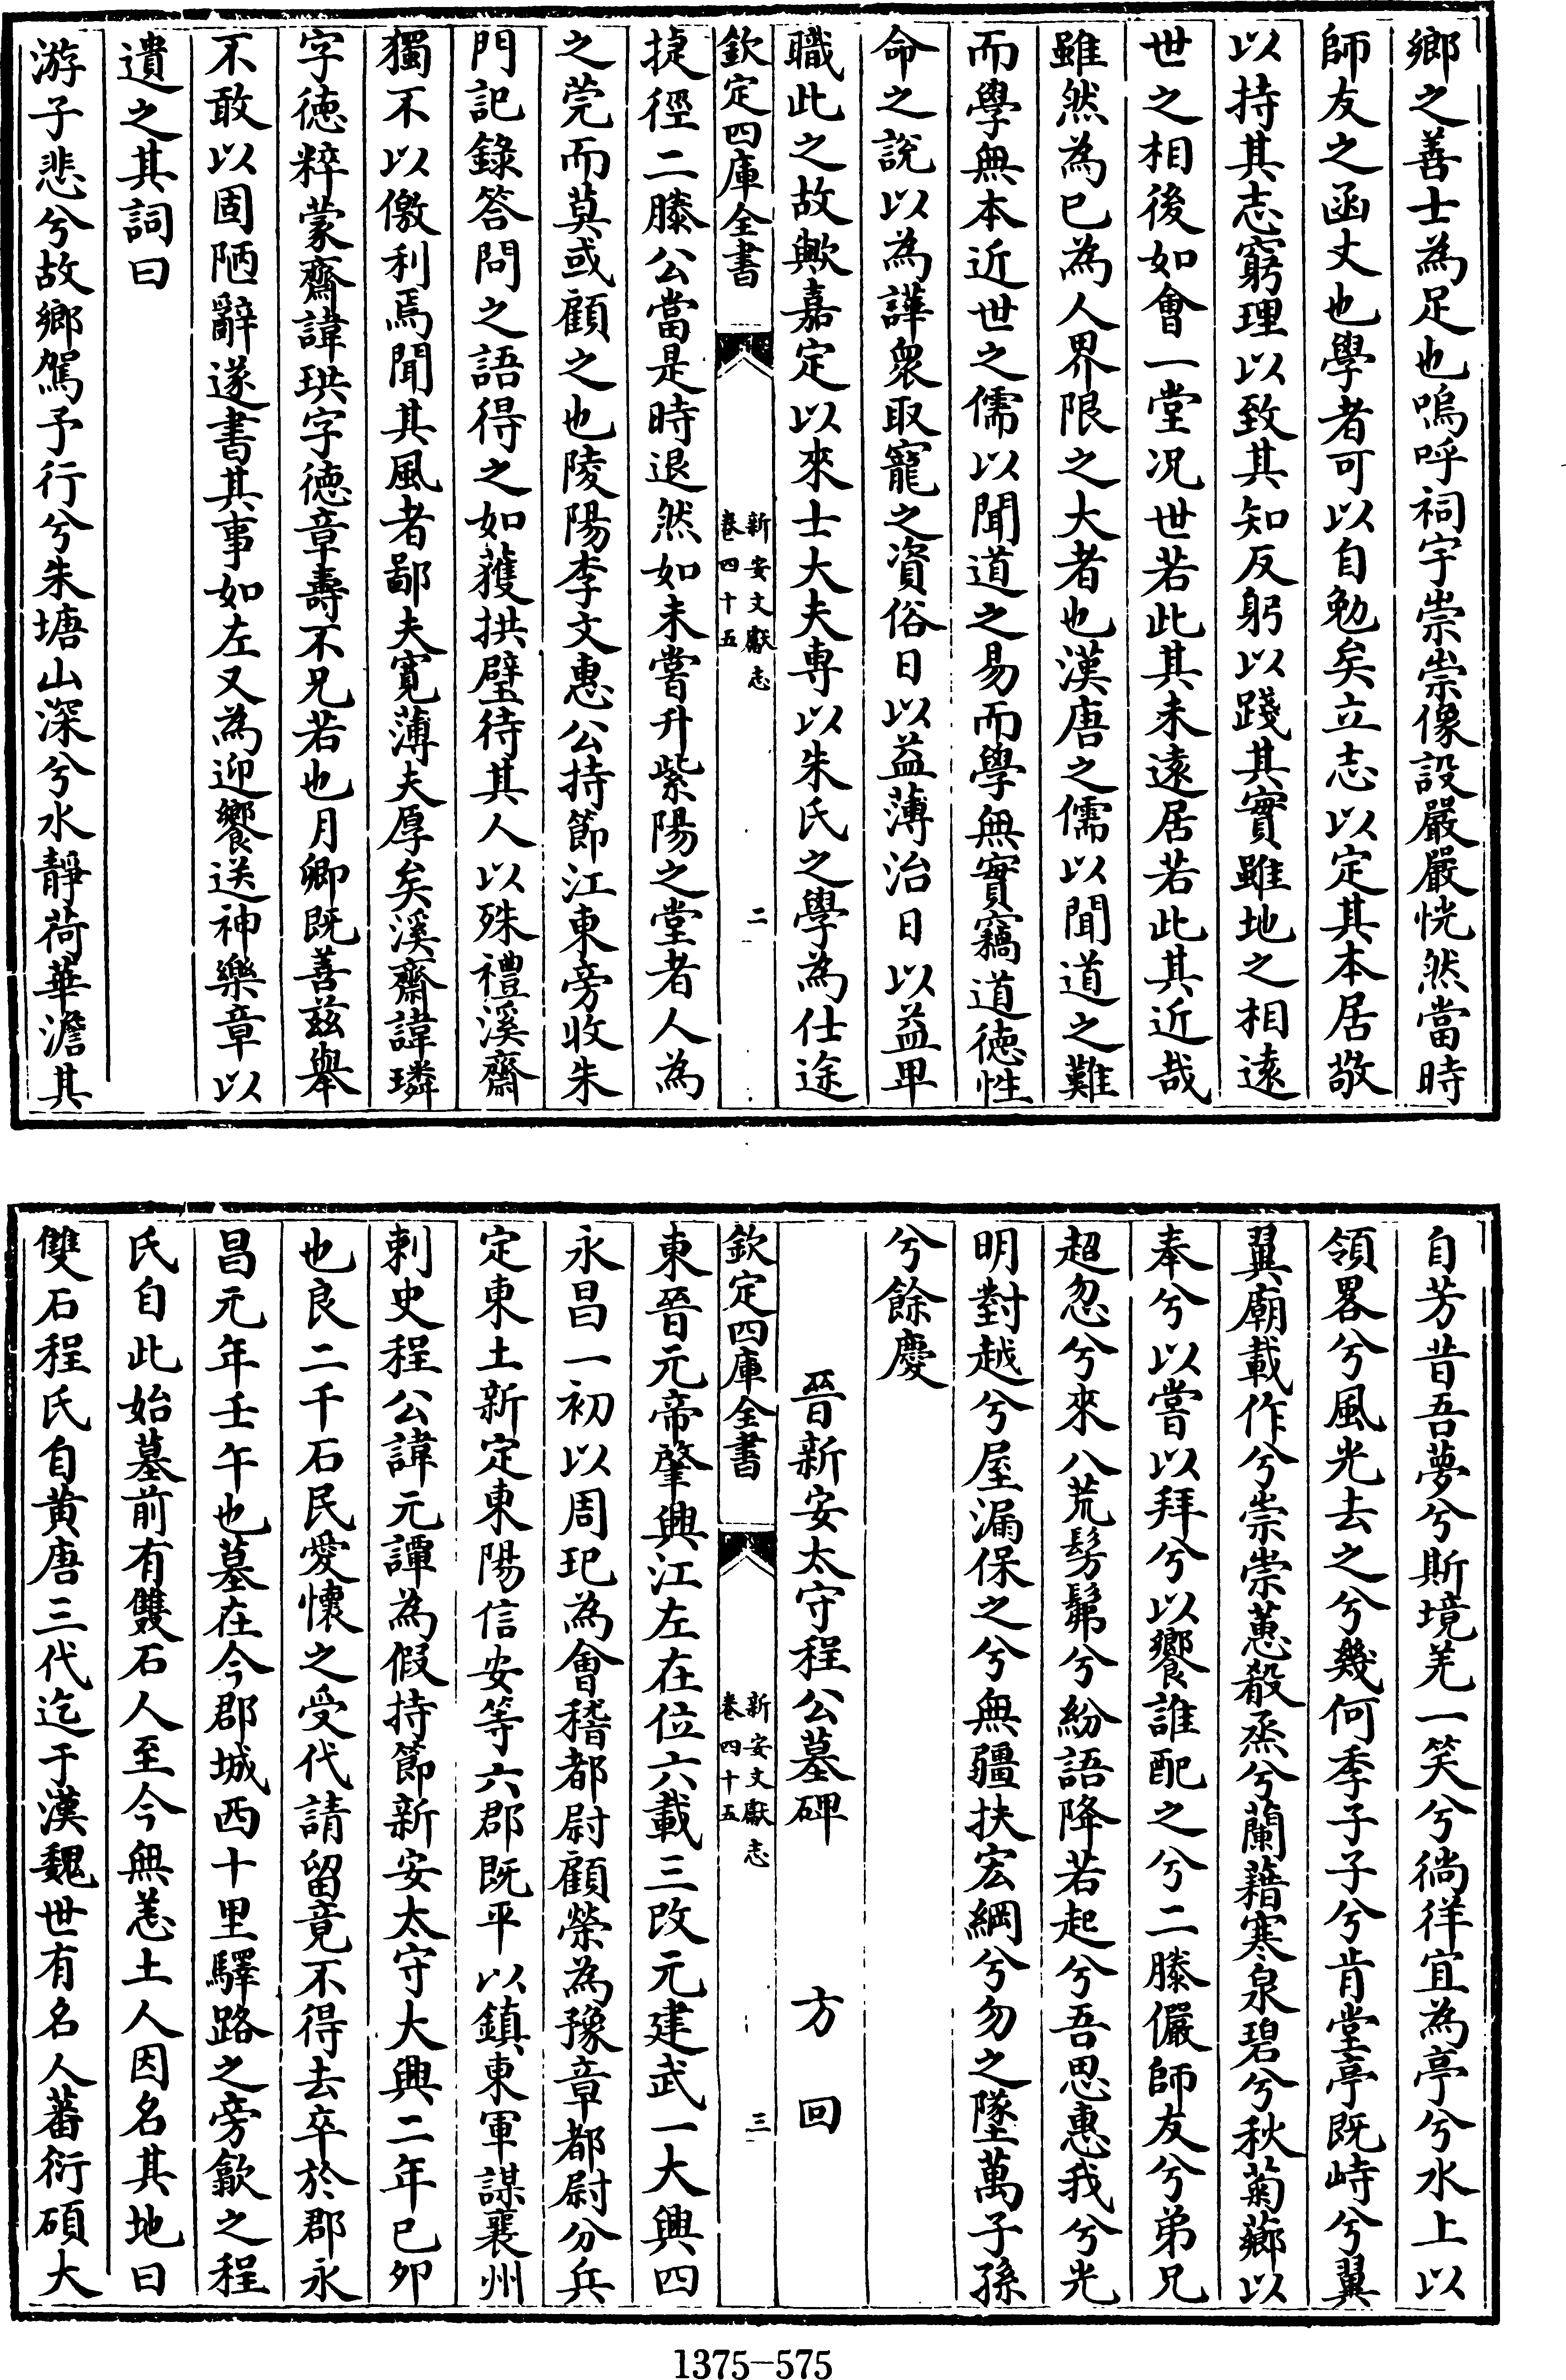 鄉之善士為足也嗚呼祠宇崇崇像設嚴嚴恍然當時
師友之函丈也學者可以自勉矣立志以定其本居敬
以持其志窮理以致其知反躬以踐其實雖地之相遠
世之相後如會一堂况世若此其未遠居若此其近哉
雖然為已為人界限之大者也漢唐之儒以聞道之難
而學無本近世之儒以聞道之易而學無實竊道徳性
命之說以為譁衆取寵之資俗日以益薄治日以益卑
職此之故歟嘉定以來士大夫專以朱氏之學為仕途
欽定四庫全書
新安文獻志
卷四十五
二
捷徑二滕公當是時退然如未嘗升紫陽之堂者人為
之莞而莫或顧之也陵陽李文惠公持節江東旁收朱
門記錄答問之語得之如獲拱璧待其人以殊禮溪齋
獨不以儌利焉聞其風者鄙夫寛薄夫厚矣溪齋諱璘
字徳粹蒙齋諱珙字徳章壽不兄若也月卿既善兹舉
不敢以固陋辭遂書其事如左又為迎饗送神樂章以
遺之其詞曰
游子悲兮故鄉駕予行兮朱塘山深兮水靜荷華澹其
自芳昔吾夢兮斯境羌一笑兮徜徉宜為亭兮水上以
領畧兮風光去之兮幾何季子子兮肯堂亭既峙兮翼
翼廟載作兮崇崇蕙殽烝兮蘭藉寒泉碧兮秋菊薌以
奉兮以嘗以拜兮以饗誰配之兮二滕儼師友兮弟兄
超忽兮來八荒髣髴兮紛語降若起兮吾思惠我兮光
明對越兮屋漏保之兮無疆扶宏綱兮勿之墜萬子孫
兮餘慶
晉新安太守程公墓碑 方回
欽定四庫全書
新安文獻志
卷四十五
三
東晉元帝肇興江左在位六載三改元建武一大興四
永昌一初以周玘為會稽都尉顧榮為豫章都尉分兵
定東土新定東陽信安等六郡既平以鎮東軍謀襄州
刺史程公諱元譚為假持節新安太守大興二年已卯
也良二千石民愛懷之受代請留竟不得去卒於郡永
昌元年壬午也墓在今郡城西十里驛路之旁歙之程
氏自此始墓前有雙石人至今無恙土人因名其地曰
雙石程氏自黄唐三代迄于漢魏世有名人蕃衍碩大
1375-575